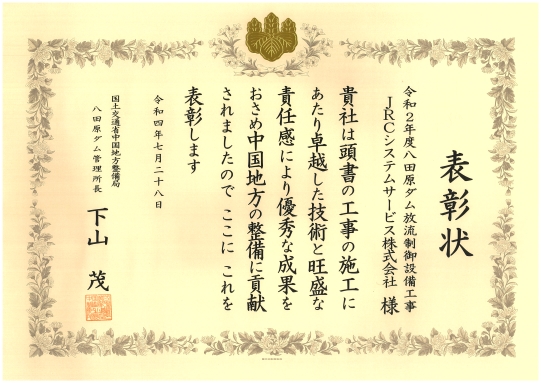 表彰状
令和2年度八田原ダム放流制御設備工事
JRCシステムサービス株式会社 様
貴社は頭書の工事の施工に
あたり卓越した技術と旺盛な
責任感により優秀な成果を
おさめ中国地方の整備に貢献
されましたので ここに これを
表彰します
令和四年七月二十八日
国土交通省中国地方整備局
八田原ダム管理所長
下山 茂